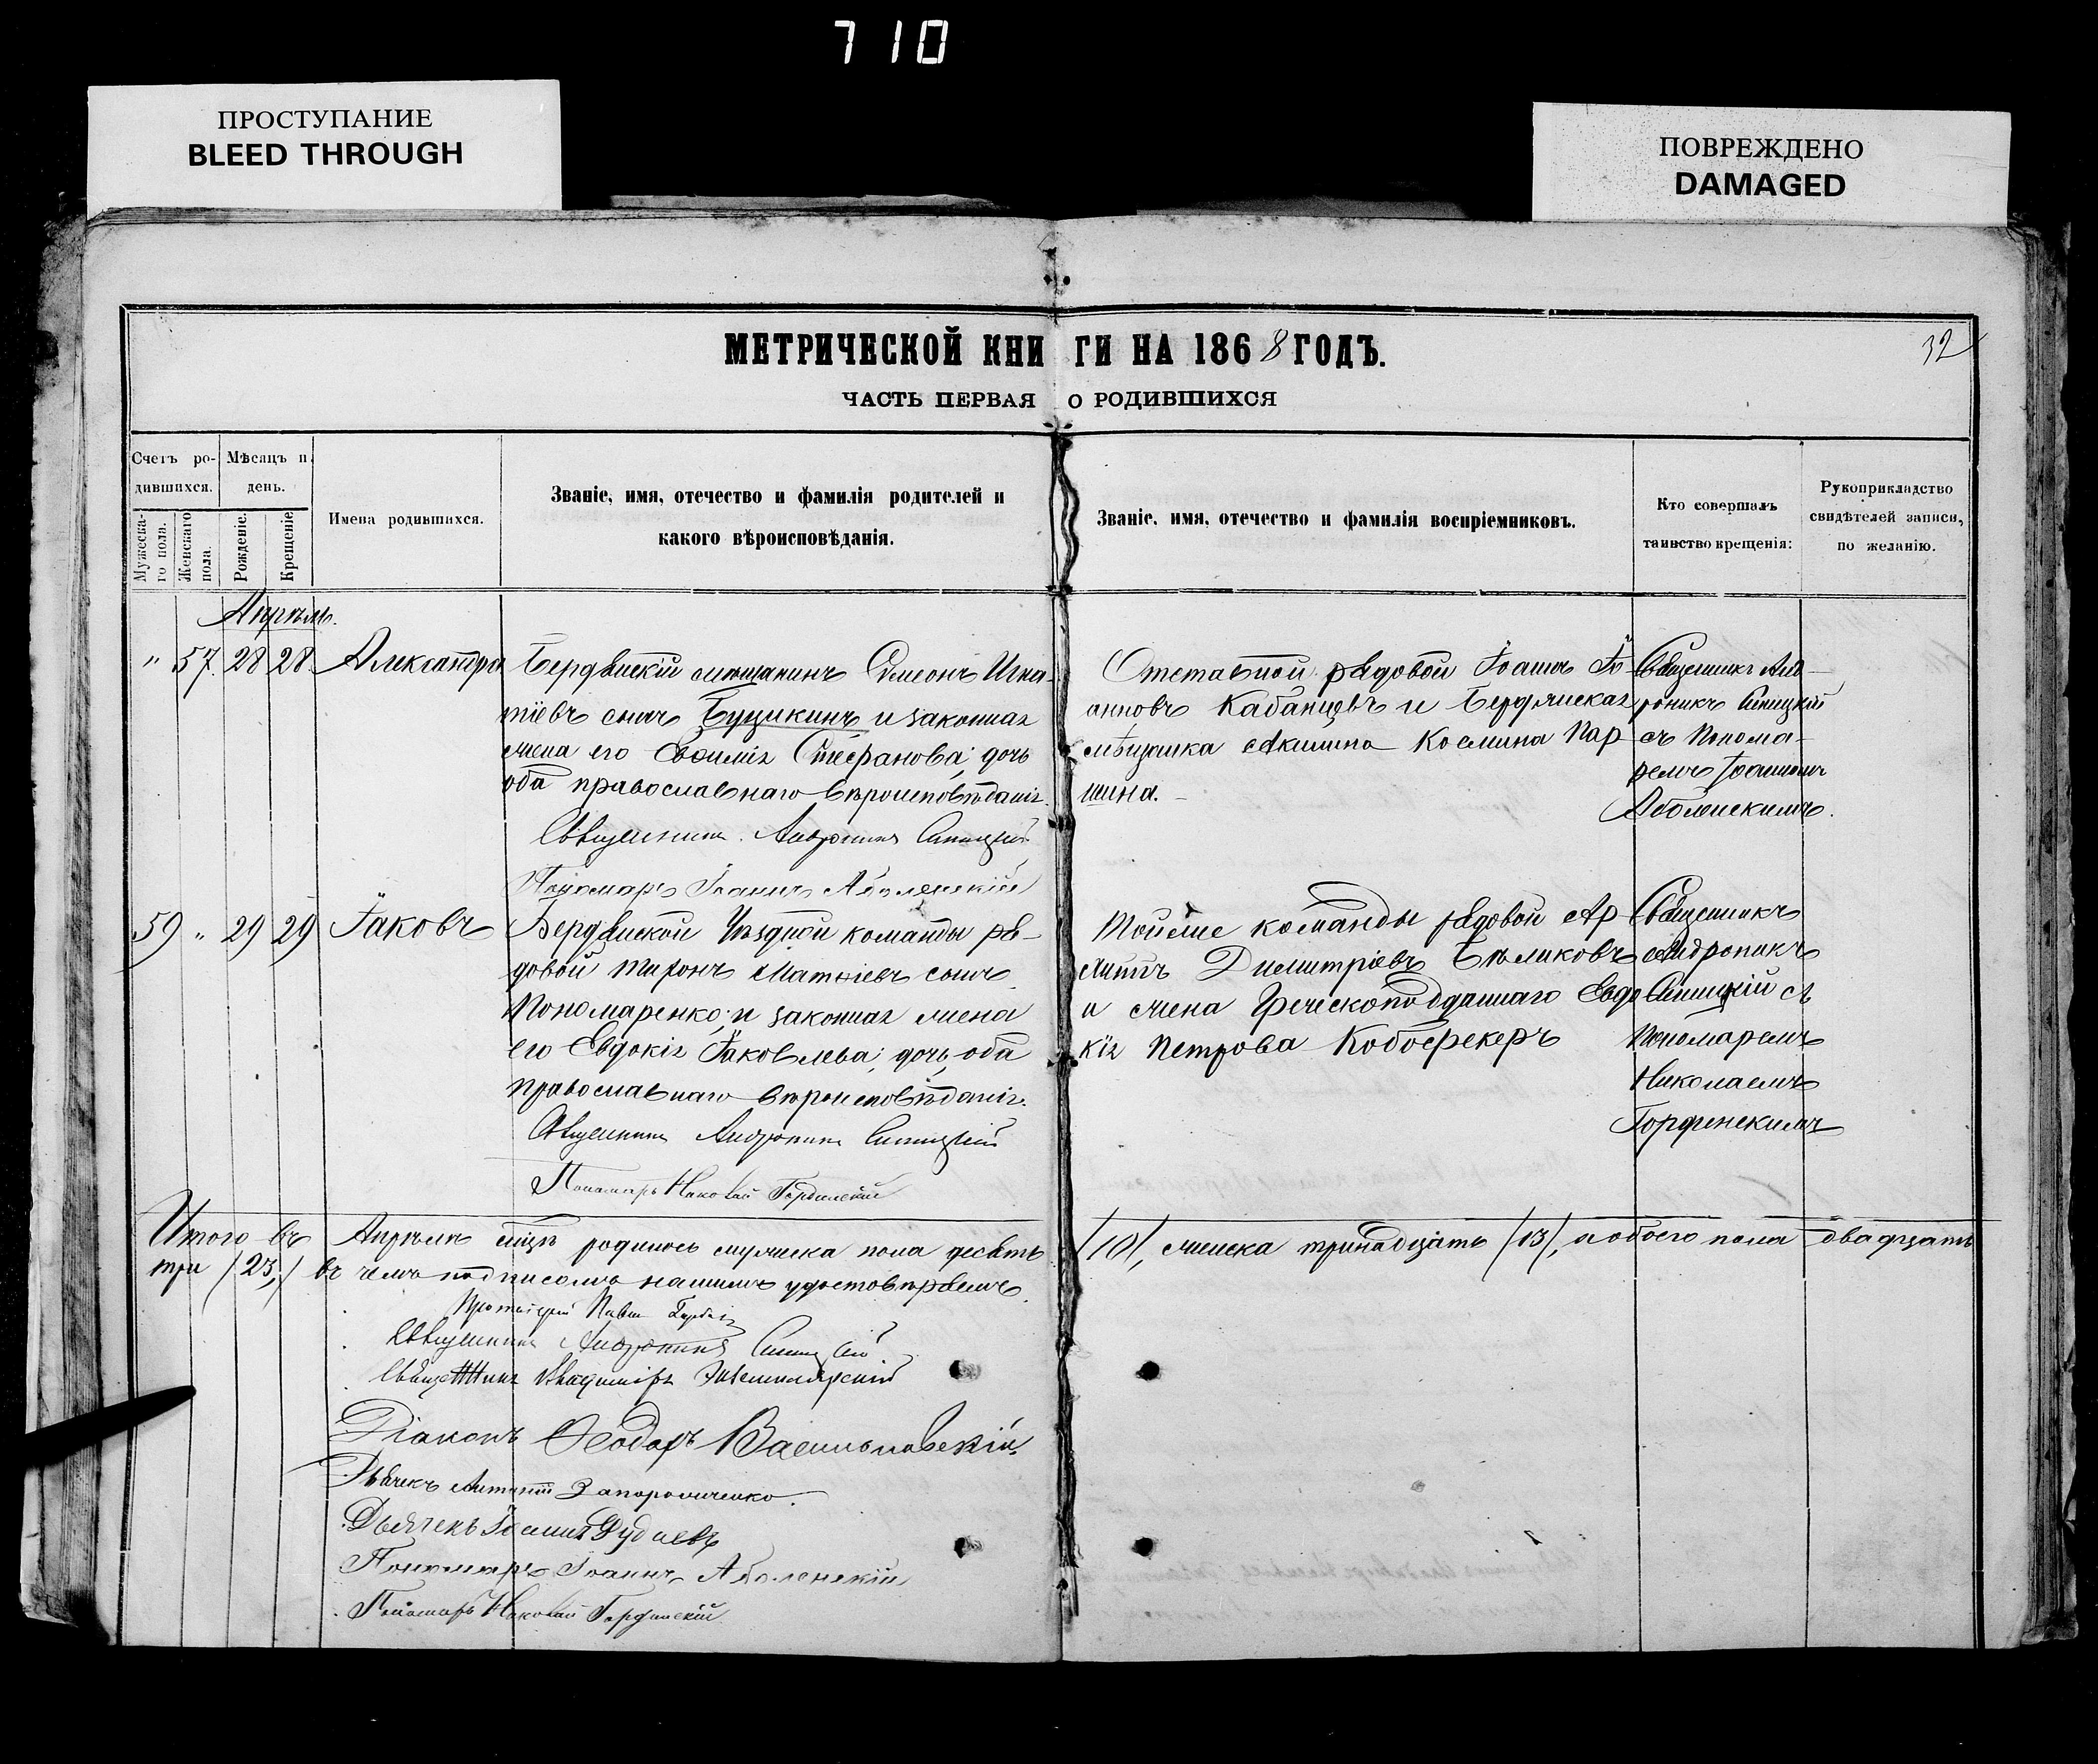 710
ПРОСТУПАНИЕ
BLEED THROUGH
ПОВРЕЖДЕНО
DAMAGED
МЕТРИЧЕСКОЙ КНИГИ НА 1868 ГОДЪ.
32
ЧАСТЬ ПЕРВАЯ О РОДИВШИХСЯ
Счетъ ро-
дившихся.
Мѣсяцъ и
день.
Мужеска-
го пола.
Женскаго
пола.
Рожденіе.
Крещеніе
Имена родившихся.
Званіе, имя, отечество и фамилія родителей и
какого вѣроисповѣданія.
Званіе, имя, отечество и фамилія воспріемниковъ.
Кто совершалъ
таинство крещенія:
Рукоприкладство
свидѣтелей записи,
по желанію.
Апрѣль.
" 57. 28 28. Александра
Бердянскій мѣщанинъ Симеонъ Игна-
тіевъ сынъ Буцикинъ и законная
жена его Евфимія Стефанова дочь
оба православнаго вѣроисповѣданія.
Священникъ Андроникъ Синицкій
Пономарь Іоаннъ Аболенскій
Отставной рядовой Іоаннъ Іо-
анновъ Кабанцевъ и Бердянская
мѣщанка Акилина Космина Пар
шина.
Священникъ Анд-
роникъ Синицкій
съ Понома-
ремъ Іоанномъ
Аболенскимъ.
59 " 29 29 Іаковъ
Бердянской Уѣздной команды ря-
довой Тихонъ Матѳіевъ сынъ
Пономаренко и законная жена
его Евдокія Іаковлева дочь, оба
православнаго вѣроисповѣданія.
Священникъ Андроникъ Синицкій
Пономарь Николай Гордынскій
Той же команды рядовой
Димитріевъ Бѣликовъ
и жена Греческоподданнаго Евдо
кія Петрова
Священникъ
Андроникъ
Синицкій съ
Пономаремъ
Николаемъ
Гордынскимъ
Итого въ Апрѣлѣ мцѣ родилось мужеска пола десять /10/, женска тринадцать /13/, а обоего пола двадцать
три /23/, въ чемъ подписомъ нашимъ удостовѣряемъ.
Протоіерей Павелъ
Священникъ Андроникъ Синицкій
Священникъ Владиміръ
Діаконъ Ѳеодоръ Васильковскій
Дьячекъ Запорожченко.
Дьячекъ Іоаннъ Дудаевъ
Пономарь Іоаннъ Аболенскій
Пономарь Николай Гордынскій